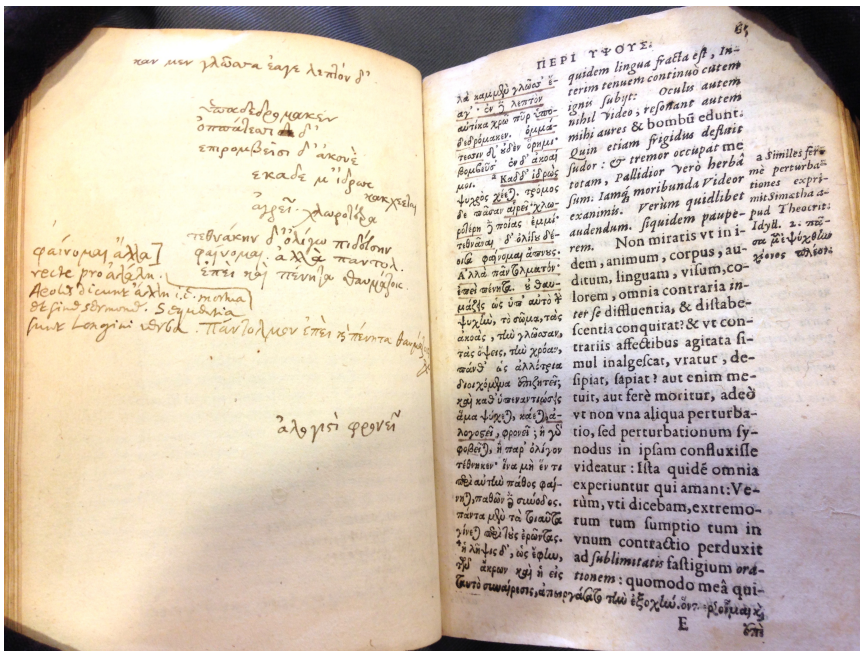 καν μεν γλῶσσα ἔαγε λεπτὸν δ'
ὑπαδεδρομακεν
ὀππάτεσσι δ'
ἐπιρομβεῖσι δ' ἀκουὲ
ἐκαδε μ' ἱδρως
κακχέεται
ἀγρεῖ. χλωροτέρα
τεθνάκην δ' ὀλίγω πιδεύσην
φαίνομαι. ἀλλὰ παντολ.
ἐπεὶ καὶ πένητα θαυμάζοις.
φαίνομαι ἄλλα]
recte pro
Aeoles dicunt ἄλλη i.e.
Sequentia
sunt Longini verba. Πάντολμον ἐπεὶ κὶ πένητα
ἀλογιστὶ φρονεῖ
65
ΠΕΡΙ ΥΨΟΥΣ.
λὰ καμμὲν γλῶσσ' ἔ-
αγ'. ἐν ἢ λεπτὸν
αὐτίκα χρῶ πῦρ ὑπο-
δεδρόμακεν. ὀμμά-
τεσσιν δ' οὐδὲν ὄρημι.
βομβεῦσιν δ' ἀκοαὶ
μοι. ᵃ Καδδ' ἱδρὼς
ψυχρὸς χέεται. τρόμος
δὲ πᾶσαν αἱρεῖ. χλω-
ροτέρη ποίας ἐμμί.
τεθνάναι δ' ὀλίγου δέ-
οισα φαίνομαι ἄπνους.
Αλλὰ πὰν τολματόν.
ἐπεὶ πένητα. οὐ θαυ-
μάζεις ὡς ὑπ' αὐτὸ τὴν
ψυχὴν, τὸ σῶμα, τὰς
ἀκοὰς, τὴν γλῶσσαν,
τὰς ὄψεις, τὴν χρόαν,
πάνθ' ὡς ἀλλότρια
διοιχόμενα ἐπιζητεῖ;
καὶ καθ' ὑπεναντιώσεις
ἅμα ψύχεται, κάεται, ἀ-
λογιστεῖ, φρονεῖ; ἢ γὰρ
φοβεῖται, ἢ παρ' ὀλίγον
τέθνηκεν. ἵνα μὴ ἕν τι
περὶ αὐτὴν πάθος φαί-
νηται, παθῶν δὲ σύνοδος.
πάντα μὲν τὰ τοιαῦτα
γίνεται περὶ τοὺς ἐρῶντας.
ἡ λῆψις δ', ὡς ἔφην,
τῶν ἄκρων καὶ ἡ εἰς
ταυτὸ συναίρεσις, ἀπειργάσατο τὴν ἐξοχήν.
quidem lingua fracta est, In-
terim tenuem continuò cutem
ignis subijt: Oculis autem
nihil video, resonant autem
mihi aures & bombũ edunt.
Quin etiam frigidus destatit
sudor: & tremor occupat me
totam, Pallidior verò herbâ
sum. Iamq; moribunda Videor
exanimis. Verùm quidlibet
audendum. siquidem paupe-
rem. Non miratis vt in i-
dem, animum, corpus, au-
ditum, linguam, visum, co-
lorem, omnia contraria in-
ter se diffluentia, & distabe-
scentia conquirat? & vt con-
trariis affectibus agitata si-
mul inalgescat, vratur, de-
sipiat, sapiat? aut enim me-
tuit, aut ferè moritur, adeò
vt non vna aliqua perturba-
tio, sed perturbationum sy-
nodus in ipsam confluxisse
videatur: Ista quidẽ omnia
experiuntur qui amant: Ve-
rùm, vti dicebam, extremo-
rum tum sumptio tum in
vnum contractio perduxit
ad sublimitatis fastigium ora-
tionem: quomodo meâ qui-
a Similes fer-
mè perturba-
tiones expri-
mit Simatha a-
pud Theocrit.
Idyll. 2. πᾶ-
σα μὲν ψύχθην
χιόνος πλέον.
E
ἐπὶ